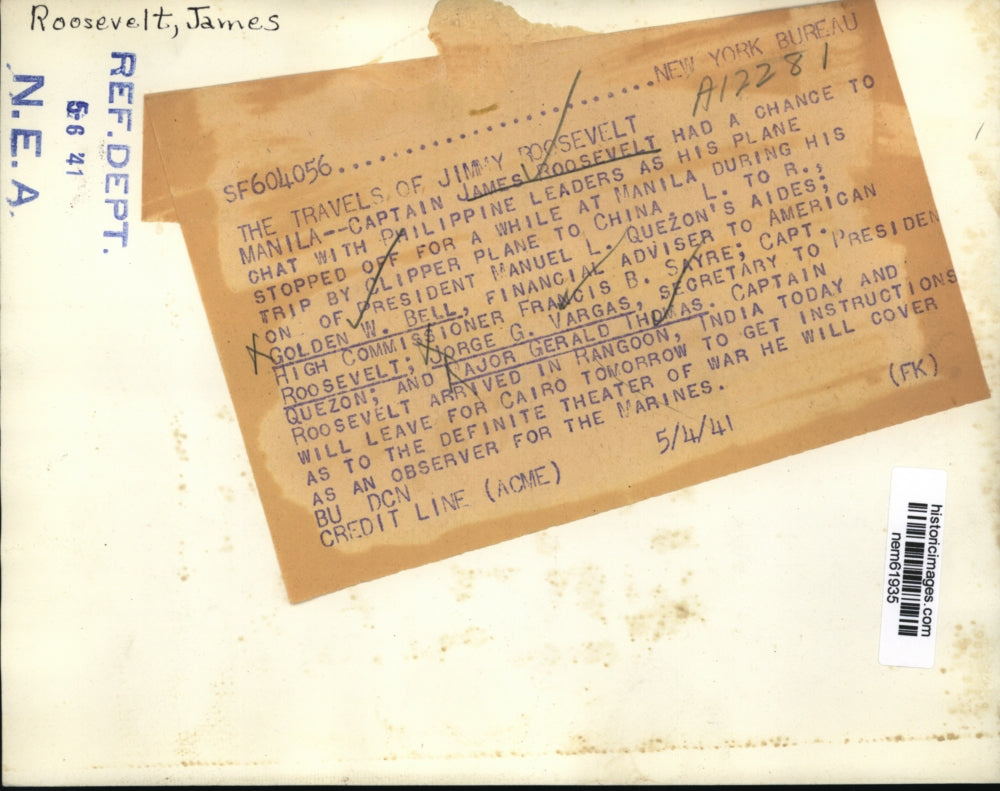 Roosevelt, James
REF. DEPT.
5 6 41
N.E.A.
SF604056..............................NEW YORK BUREAU
A12281
THE TRAVELS OF JIMMY ROOSEVELT
MANILA--CAPTAIN JAMES ROOSEVELT HAD A CHANCE TO
CHAT WITH PHILIPPINE LEADERS AS HIS PLANE
STOPPED OFF FOR A WHILE AT MANILA DURING HIS
TRIP BY CLIPPER PLANE TO CHINA L. TO R.,
ON OF PRESIDENT MANUEL L. QUEZON'S AIDES;
GOLDEN W. BELL, FINANCIAL ADVISER TO AMERICAN
HIGH COMMISSIONER FRANCIS B. SAYRE; CAPT.
ROOSEVELT; JORGE G. VARGAS, SECRETARY TO PRESIDEN
QUEZON; AND MAJOR GERALD THOMAS. CAPTAIN
ROOSEVELT ARRIVED IN RANGOON, INDIA TODAY AND
WILL LEAVE FOR CAIRO TOMORROW TO GET INSTRUCTIONS
AS TO THE DEFINITE THEATER OF WAR HE WILL COVER
AS AN OBSERVER FOR THE MARINES.
BU DCN 5/4/41 (FK)
CREDIT LINE (ACME)
historicimages.com
nem61935